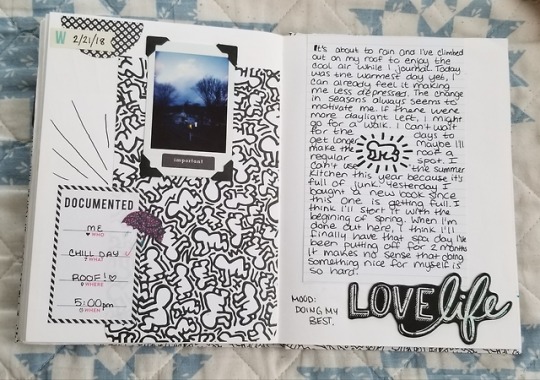 W 2/21/18
important
DOCUMENTED
ME
WHO
CHILL DAY
WHAT
ROOF!♡
WHERE
5:00pm
WHEN
It's about to rain and I've climbed
out on my roof to enjoy the
cool air while I journal. Today
was the warmest day yet, I
can already feel it making
me less depressed. The change
in seasons always seems to
motivate me. If there were
more daylight left, I might
go for a walk. I can't wait
for the days to
get longer maybe I'll
make the roof a
regular spot. I
can't use the summer
kitchen this year because it's
full of junk. Yesterday I
bought a new book since
this one is getting full. I
think I'll start it with the
beginning of spring. When I'm
done out here, I think I'll
finally have that spa day I've
been putting off for 2 months
It makes no sense that doing
something nice for myself is
so hard.
MOOD:
DOING MY
BEST.
LOVE life